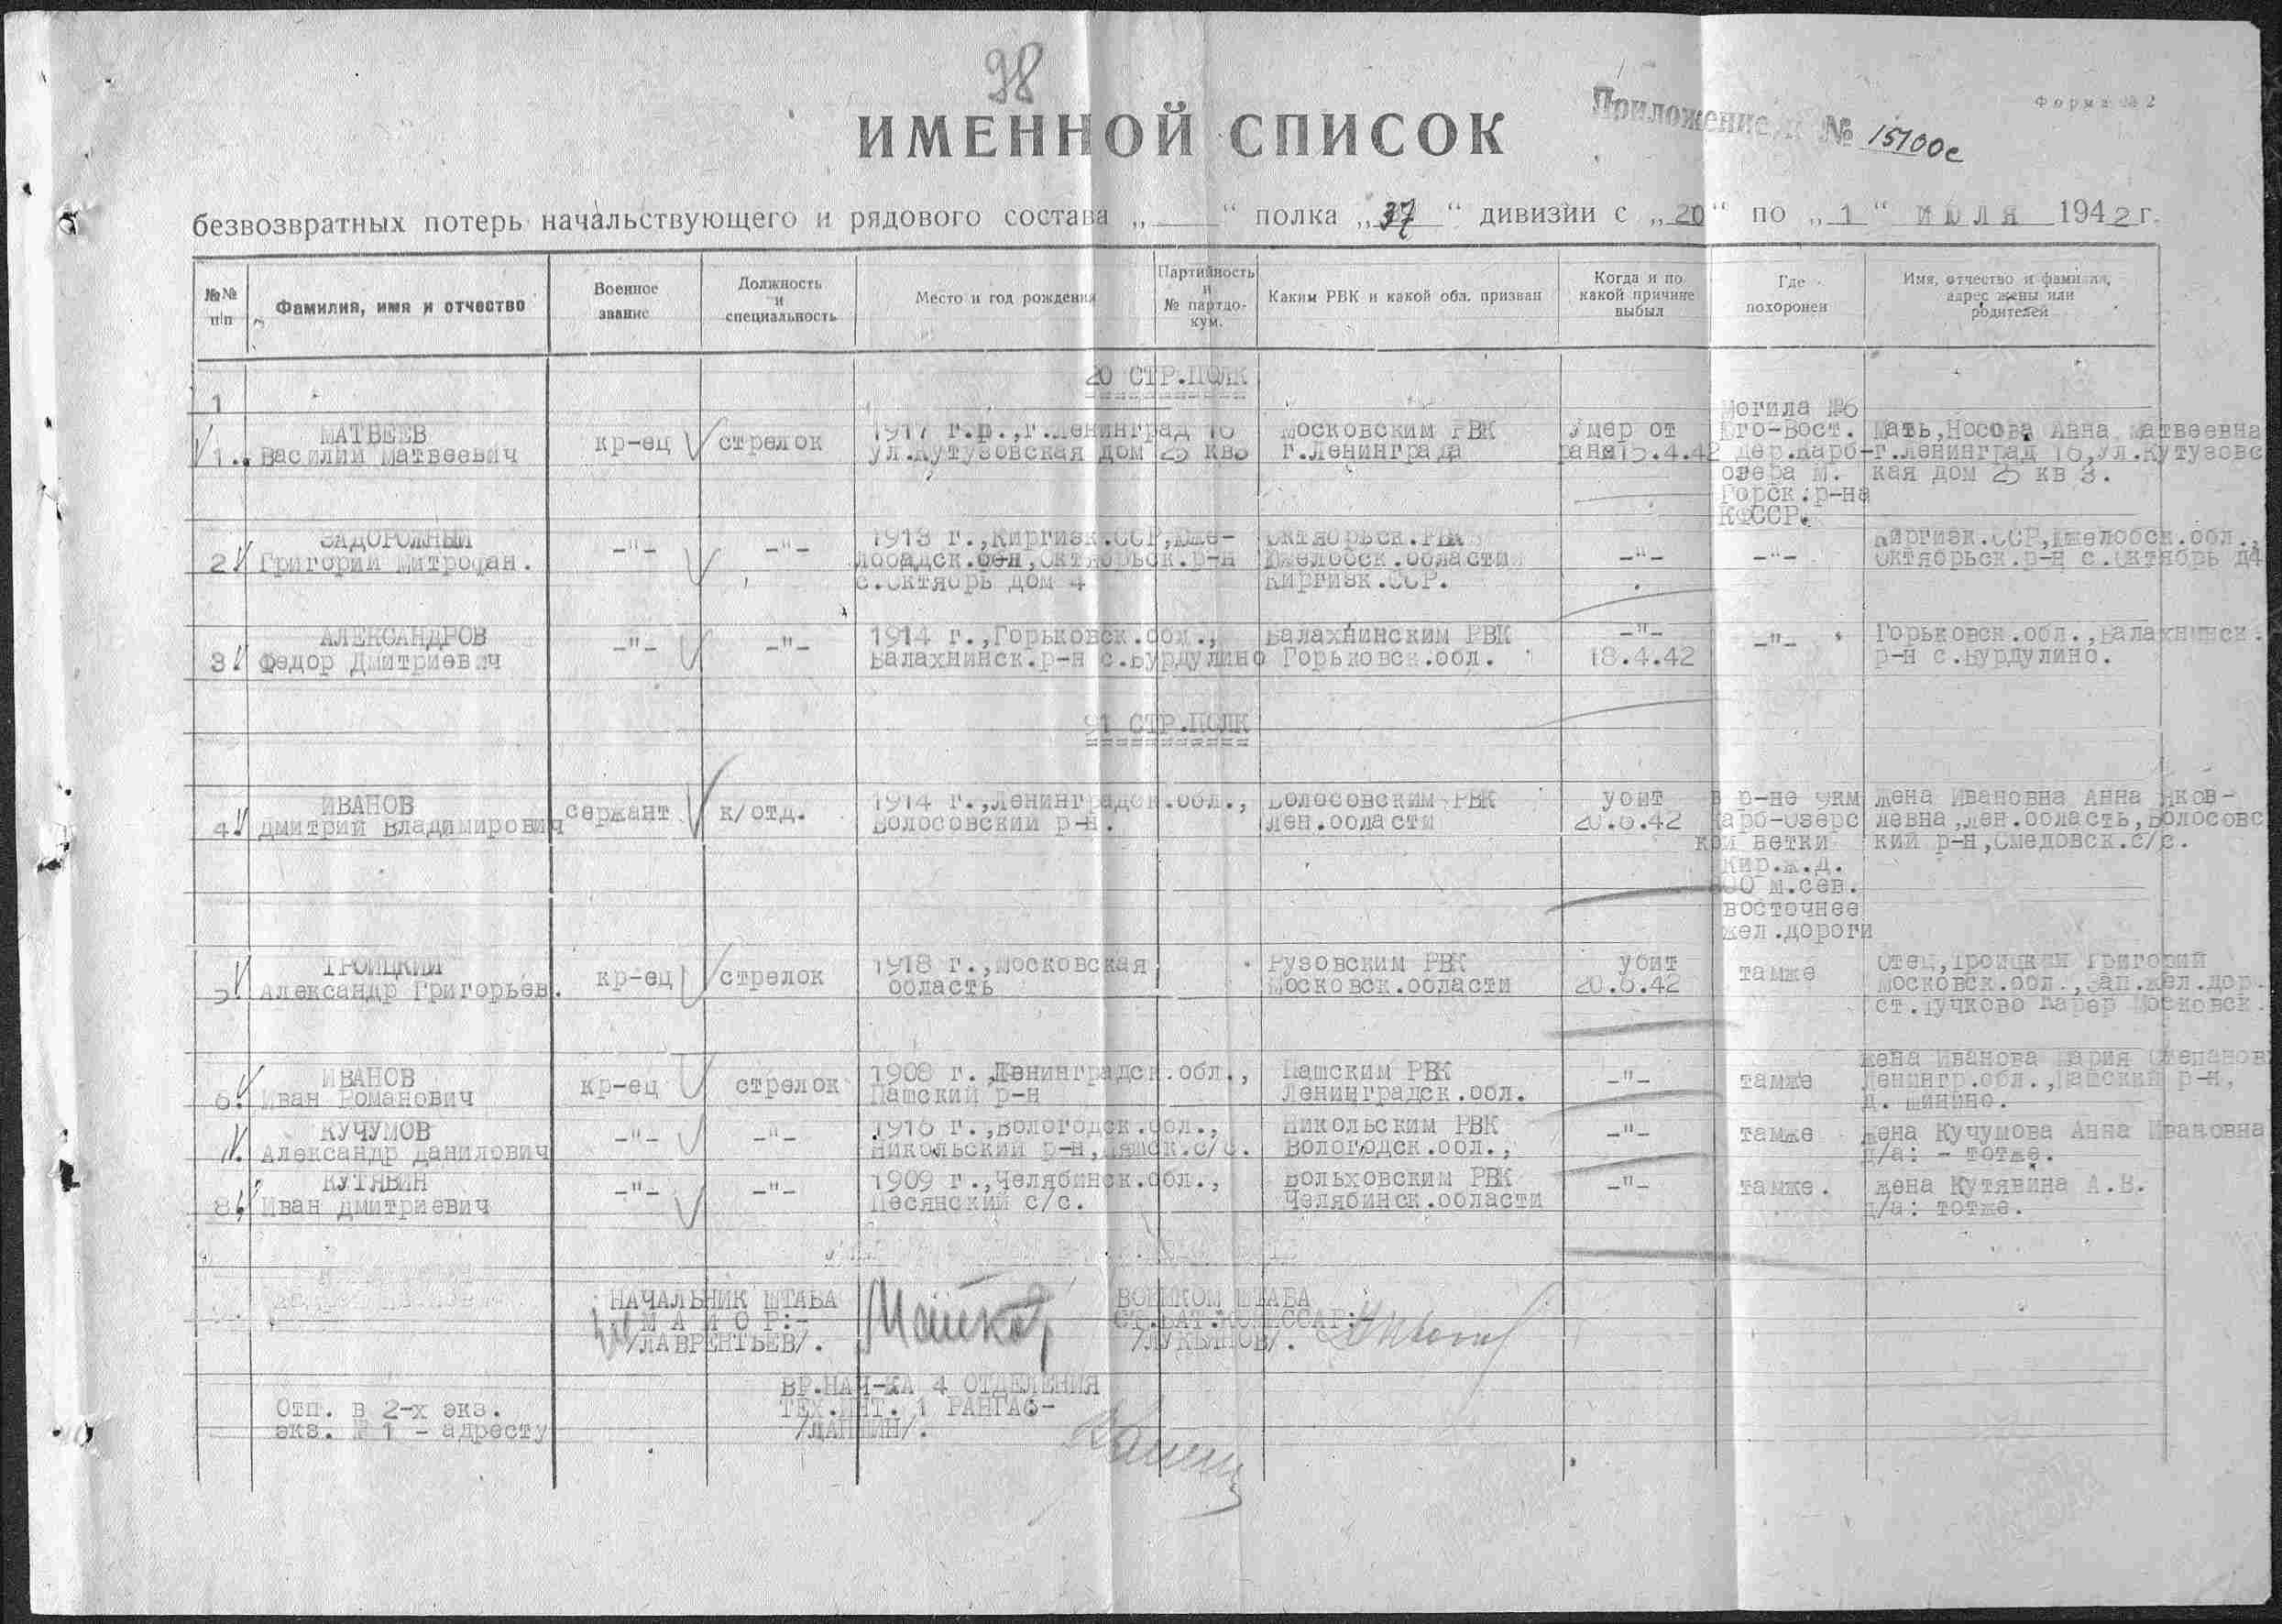 98
Форма № 2
Приложение к № 15100с
ИМЕННОЙ СПИСОК
безвозвратных потерь начальствующего и рядового состава „ “ полка „37“ дивизии с „20“ по „1“ июля 1942 г.
№№ п/п
Фамилия, имя и отчество
Военное звание
Должность и специальность
Место и год рождения
Партийность и № партдокум.
Каким РВК и какой обл. призван
Когда и по какой причине выбыл
Где похоронен
Имя, отчество и фамилия, адрес жены или родителей
20 СТР.ПОЛК
1
1. МАТВЕЕВ
Василий Матвеевич
кр-ец
стрелок
1917 г.р.,г.Ленинград 16
ул.Кутузовская дом 25 кв3
Московским РВК
г.Ленинграда
Умер от
ран 15.4.42
Могила №6
Юго-Вост.
дер.Каро-
озера М.
Горск.р-на
КФССР.
Мать,Носова Анна Матвеевна
г.Ленинград 16,ул.Кутузовс
кая дом 25 кв 3.
2 ЗАДОРОЖНЫЙ
Григорий Митрофан.
-"-
-"-
1913 г.,Киргизк.ССР,Дже-
лобадск.обл,Октябрьск.р-н
с.Октябрь дом 4
Октябрьск.РВК
Джелобск.области
Киргизк.ССР.
-"-
-"-
Киргизк.ССР,Джелобск.обл.,
Октябрьск.р-н с.Октябрь д4
3 АЛЕКСАНДРОВ
Федор Дмитриевич
-"-
-"-
1914 г.,Горьковск.обл.,
Балахнинск.р-н с.Бурдулино
Балахнинским РВК
Горьковск.обл.
-"-
18.4.42
-"-
Горьковск.обл.,Балахнинск.
р-н с.Бурдулино.
91 СТР.ПОЛК
4. ИВАНОВ
Дмитрий Владимирович
сержант
к/отд.
1914 г.,Ленинградск.обл.,
Волосовский р-н.
Волосовским РВК
Лен.области
убит
20.6.42
В р-не 9км
Каро-озерс
кой ветки
Кир.ж.д.
м.сев.
восточнее
жел.дороги
Жена Ивановна Анна Яков-
левна,Лен.область,Волосовс
кий р-н,Смедовск.с/с.
5. ТРОИЦКИЙ
Александр Григорьев.
кр-ец
стрелок
1918 г.,Московская
область
Рузовским РВК
Московск.области
убит
20.6.42
тамже
Отец,Троицкий Григорий
Московск.обл.,Зап.жел.дор.
ст.Тучково Карер Московск.
6. ИВАНОВ
Иван Романович
кр-ец
стрелок
1908 г.,Ленинградск.обл.,
Пашский р-н
Пашским РВК
Ленинградск.обл.
-"-
тамже
Жена Иванова Мария Степанов
Ленингр.обл.,Пашский р-н,
д. Шинино.
КУЧУМОВ
Александр Данилович
-"-
-"-
1916 г.,Вологодск.обл.,
Никольский р-н, с/с.
Никольским РВК
Вологодск.обл.,
-"-
тамже
Жена Кучумова Анна Ивановна
д/а: - тотже.
8. КУТЯВИН
Иван Дмитриевич
-"-
-"-
1909 г.,Челябинск.обл.,
Песянский с/с.
Вольховским РВК
Челябинск.области
-"-
тамже.
Жена Кутявина А.В.
д/а: тотже.
НАЧАЛЬНИК ШТАБА
М А Й О Р:-
/ЛАВРЕНТЬЕВ/.
ВОЕНКОМ ШТАБА
СТ.БАТ.КОМИССАР:
/ЛУКЬЯНОВ/.
ВР.НАЧ-КА 4 ОТДЕЛЕНИЯ
ТЕХ.ИНТ. 1 РАНГАб-
/ЛАПШИН/.
Отп. в 2-х экз.
экз. № 1 - адресту